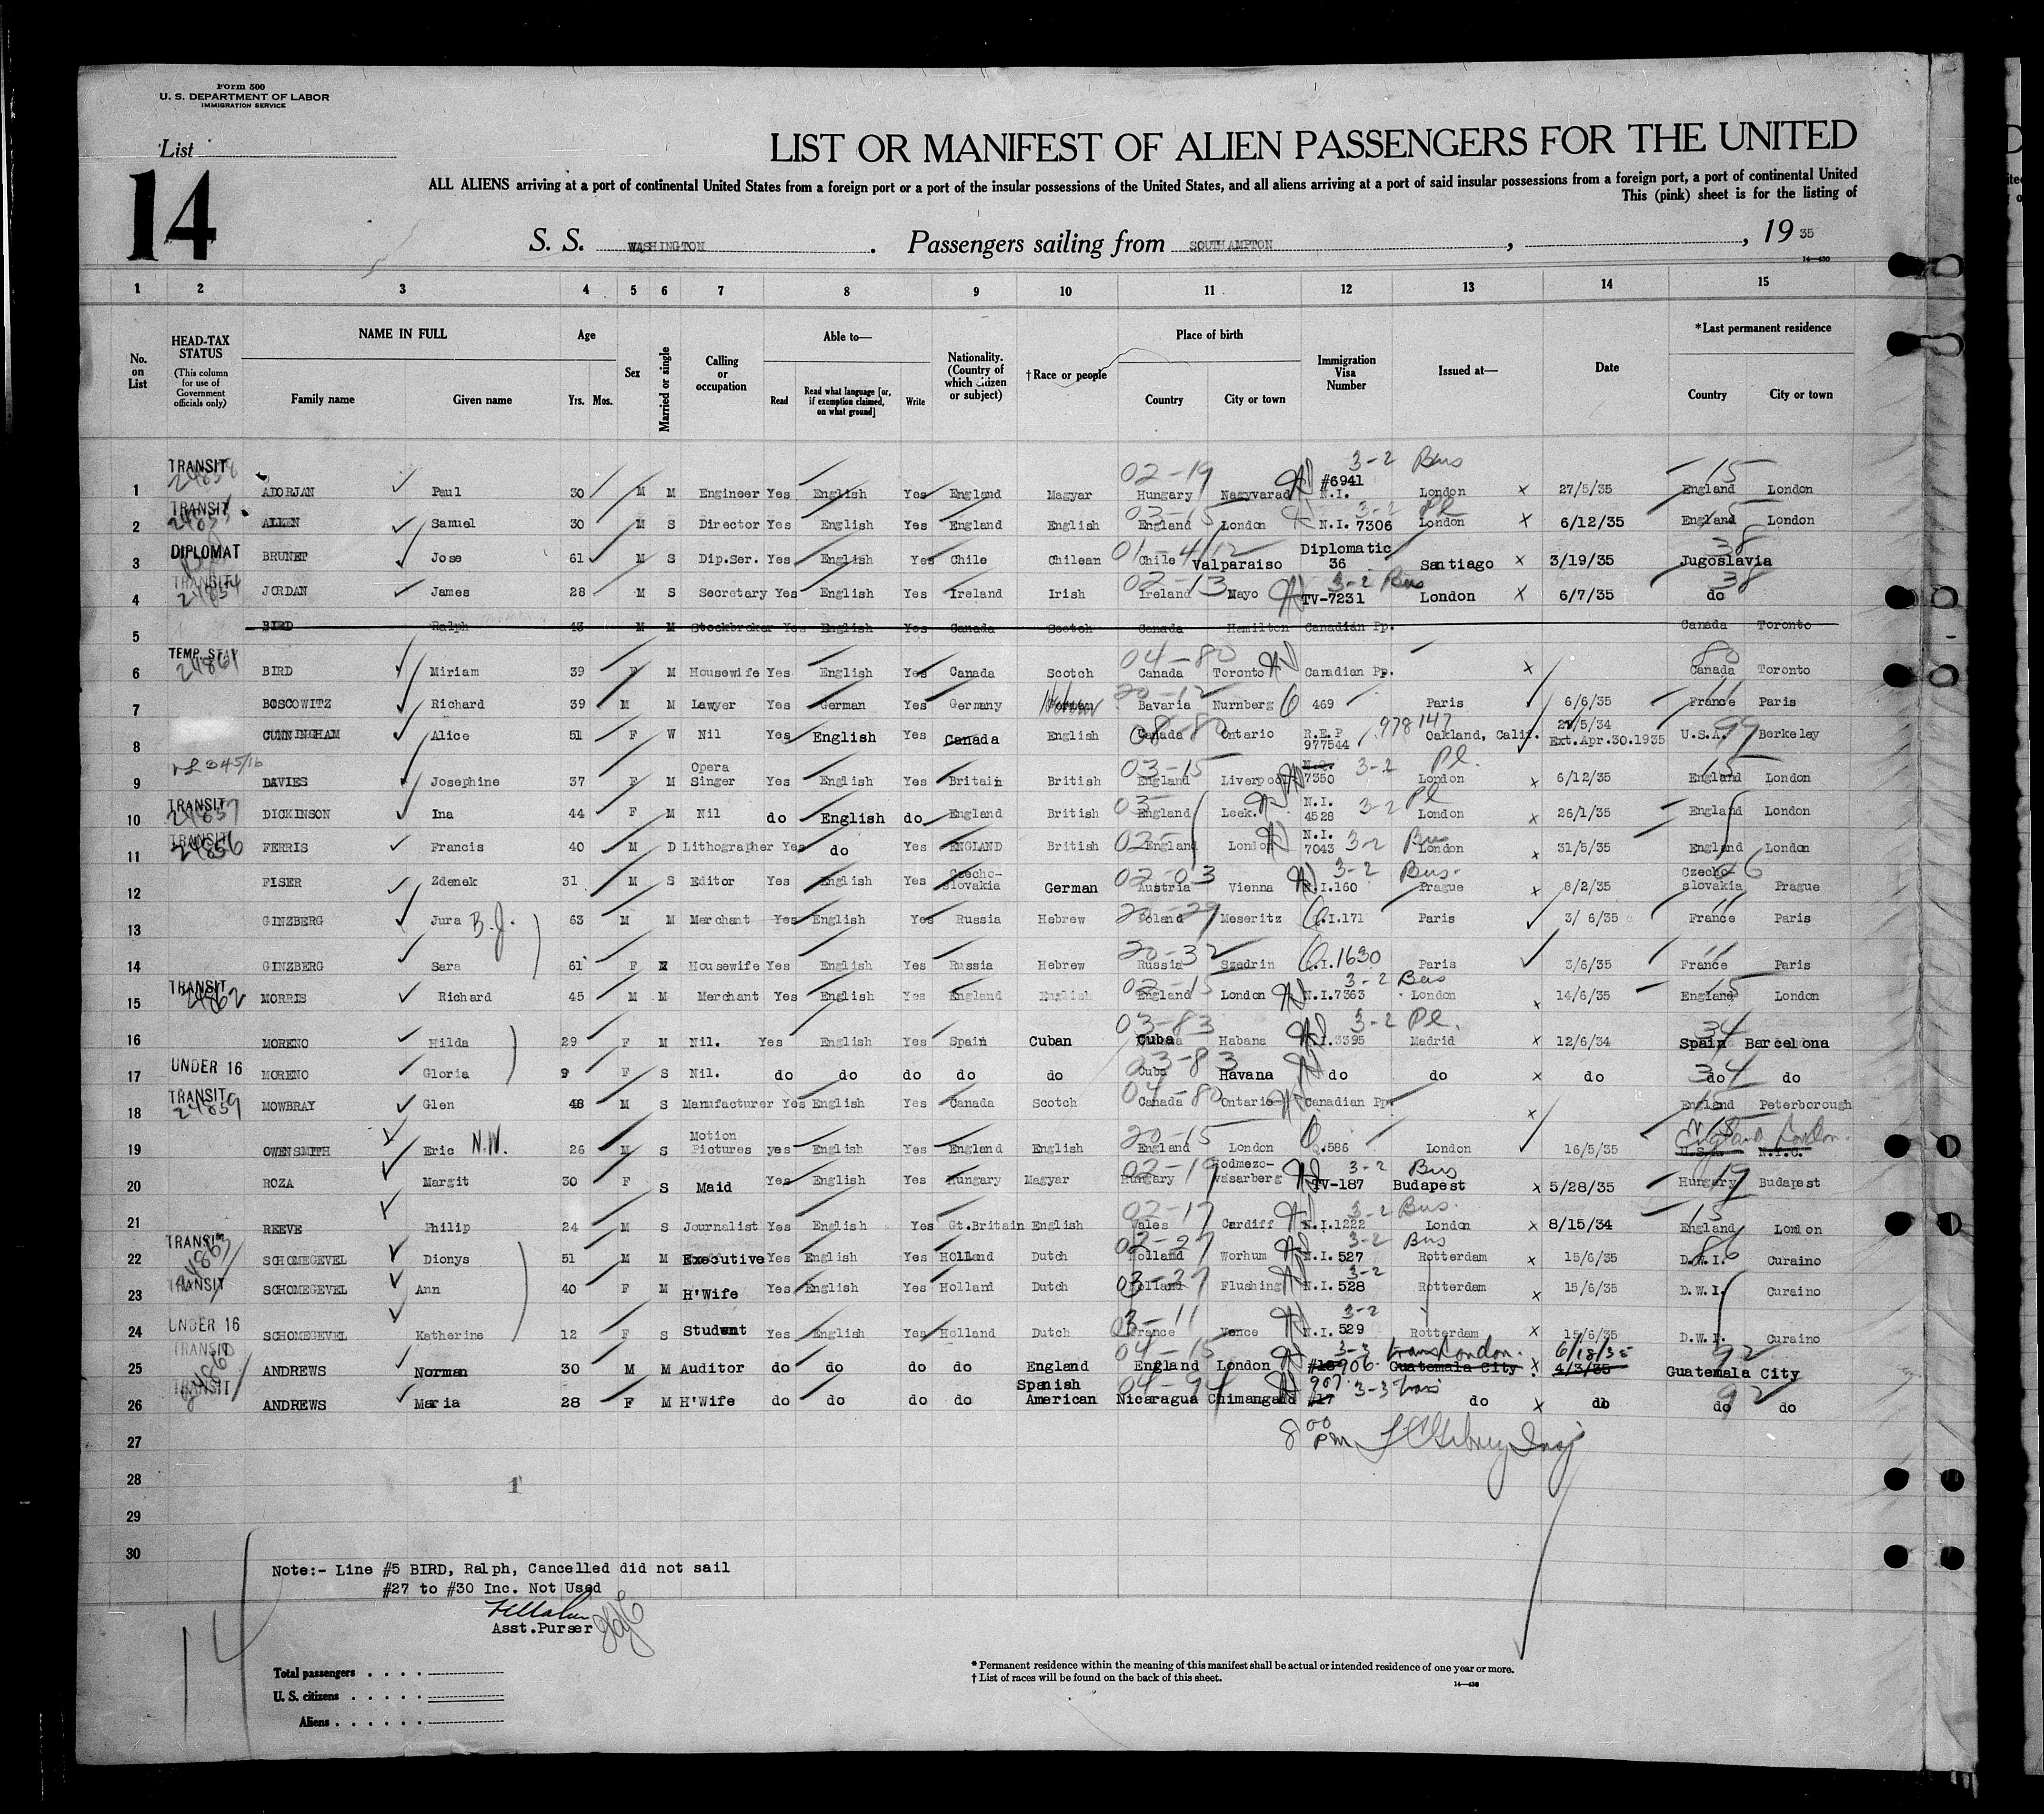 Form 500
U. S. DEPARTMENT OF LABOR
IMMIGRATION SERVICE
List
14
LIST OR MANIFEST OF ALIEN PASSENGERS FOR THE UNITED
ALL ALIENS arriving at a port of continental United States from a foreign port or a port of the insular possessions of the United States, and all aliens arriving at a port of said insular possessions from a foreign port, a port of continental United
This (pink) sheet is for the listing of
S. S. WASHINGTON . Passengers sailing from SOUTHAMPTON , , 19 35
14—430
1 2 3 4 5 6 7 8 9 10 11 12 13 14 15
No. on List
HEAD-TAX STATUS (This column for use of Government officials only)
NAME IN FULL Family name Given name
Age Yrs. Mos.
Sex
Married or single
Calling or occupation
Able to— Read Read what language [or, if exemption claimed, on what ground] Write
Nationality. (Country of which citizen or subject)
†Race or people
Place of birth Country City or town
Immigration Visa Number
Issued at—
Date
*Last permanent residence Country City or town
TRANSIT 02-19 3-2 Bus 15
1 ADORJAN Paul 30 M M Engineer Yes English Yes England Magyar Hungary Nagyvarad #6941 N.I. London x 27/5/35 England London
TRANSIT 03-15 3-2 Pl 15
2 ALLEN Samuel 30 M S Director Yes English Yes England English England London N.I. 7306 London x 6/12/35 England London
DIPLOMAT 38
3 BRUNET Jose 61 M S Dip.Ser. Yes English Yes Chile Chilean Chile Valparaiso Diplomatic 36 Santiago x 3/19/35 Jugoslavia
TRANSIT 24854 02-13 3-2 Bus 38
4 JORDAN James 28 M S Secretary Yes English Yes Ireland Irish Ireland Mayo TV-7231 London x 6/7/35 do
5 BIRD Ralph 43 M M Stockbroker Yes English Yes Canada Scotch Canada Hamilton Canadian Pp. Canada Toronto
TEMP. STAY 24861 04-80 80
6 BIRD Miriam 39 F M Housewife Yes English Yes Canada Scotch Canada Toronto Canadian Pp. x Canada Toronto
20-12
7 BOSCOWITZ Richard 39 M M Lawyer Yes German Yes Germany Bavaria Nurnberg 469 Paris 6/6/35 France Paris
08-80 978147 99
8 CUNNINGHAM Alice 51 F W Nil Yes English Yes Canada English Canada Ontario R.E.P 977544 Oakland, Calif. 29/5/34 Ext.Apr.30.1935 U.S.A. Berkeley
03-15 3-2 Pl. 15
9 DAVIES Josephine 37 F M Opera Singer Yes English Yes Britain British England Liverpool 7350 London x 6/12/35 England London
TRANSIT 24857 03 3-2 Pl
10 DICKINSON Ina 44 F M Nil do English do England British England Leek. N.I. 4528 London x 26/1/35 England London
TRANSIT 24856 02 3-2 Bus
11 FERRIS Francis 40 M D Lithographer Yes do Yes ENGLAND British England London N.I. 7043 London x 31/5/35 England London
02-03 3-2 Bus.
12 FISER Zdenek 31 M S Editor Yes English Yes Czecho-slovakia German Austria Vienna N.I.160 Prague x 8/2/35 Czecho-slovakia Prague
20-29
13 GINZBERG Jura B.J. 63 M M Merchant Yes English Yes Russia Hebrew Poland Meseritz Q.I.171 Paris 3/ 6/35 France Paris
20-32
14 GINZBERG Sara 61 F M Housewife Yes English Yes Russia Hebrew Russia Szadrin Q.I.1630 Paris 3/6/35 France Paris
TRANSIT 24862 02-15 3-2 Bus 15
15 MORRIS Richard 45 M M Merchant Yes English Yes England English England London N.I.7363 London x 14/6/35 England London
03-83 3-2 Pl. 34
16 MORENO Hilda 29 F M Nil. Yes English Yes Spain Cuban Cuba Habana N.I.3395 Madrid x 12/6/34 Spain Barcelona
UNDER 16 03-83 34
17 MORENO Gloria 9 F S Nil. do do do do do Cuba Havana do do x do do do
TRANSIT 24859 04-80 15
18 MOWBRAY Glen 48 M S Manufacturer Yes English Yes Canada Scotch Canada Ontario Canadian Pp. x England Peterborough
20-15 England London.
19 OWENSMITH Eric N.W. 26 M S Motion Pictures yes English Yes England English England London Q.586 London 16/5/35 U.S.A. N.Y.C.
02-19 3-2 Bus 19
20 ROZA Margit 30 F S Maid Yes English Yes Hungary Magyar Hungary Hodmezo-vasarberg TV-187 Budapest x 5/28/35 Hungary Budapest
02-17 3-2 Bus. 15
21 REEVE Philip 24 M S Journalist Yes English Yes Gt.Britain English Wales Cardiff N.I.1222 London x 8/15/34 England London
TRANSIT 24863 02-27 3-2 Bus 86
22 SCHOMEGEVEL Dionys 51 M M Executive Yes English Yes Holland Dutch Holland Worhum N.I. 527 Rotterdam x 15/6/35 D.W.I. Curaino
TRANSIT 03-27 3-2
23 SCHOMEGEVEL Ann 40 F M H'Wife Yes English Yes Holland Dutch Holland Flushing N.I. 528 Rotterdam x 15/6/35 D.W.I. Curaino
UNDER 16 3-11 3-2
24 SCHOMEGEVEL Katherine 12 F S Student Yes English Yes Holland Dutch France Vence N.I. 529 Rotterdam x 15/6/35 D.W.I. Curaino
TRANSIT 24860 04-15 3-3 trans London. 6/18/35 92
25 ANDREWS Norman 30 M M Auditor do do do do England England London 906 Guatemala City x 4/3/35 Guatemala City
TRANSIT 04-94 907 3-3 trans 92
26 ANDREWS Maria 28 F M H'Wife do do do do Spanish American Nicaragua Chimangand #17 do x do do do
27 8 00 PM
28 1
29
30
Note:- Line #5 BIRD, Ralph, Cancelled did not sail
#27 to #30 Inc. Not Used
Asst.Purser
14
Total passengers
U. S. citizens
Aliens
* Permanent residence within the meaning of this manifest shall be actual or intended residence of one year or more.
† List of races will be found on the back of this sheet.
14—430